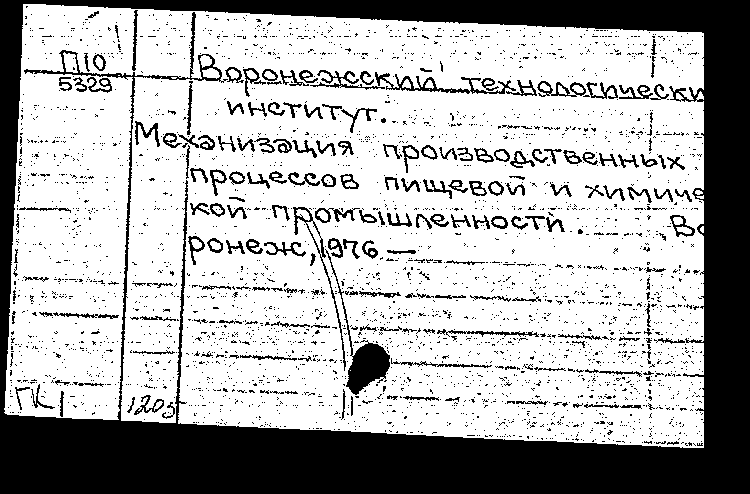 П10
5329
Воронежский технологически
институт.
Механизация производственных
процессов пищевой и химиче
кой промышленности. Во
ронеж, 1976 —
ГК 1205